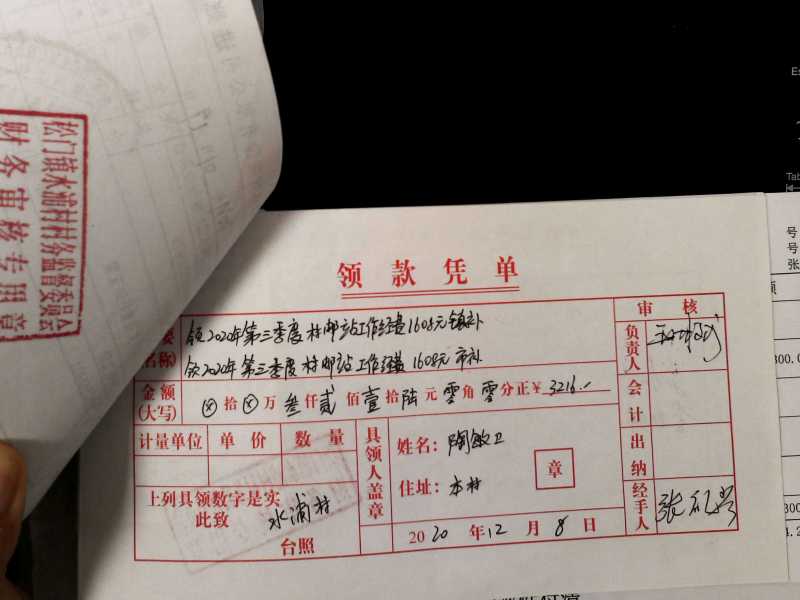 松门镇水浦村村务监督委员会
财务审核专用章
领款凭单
要
名称)
领2020年第三季度村邮站工作经费1608元镇补
领2020年第三季度村邮站工作经费1608元市补
审核
负责人
金额
(大写)
⊗拾⊗万叁仟贰佰壹拾陆元零角零分正¥3216.-
会计
计量单位 单价 数量
具领人盖章
姓名:陶敏卫
章
住址:本村
出纳
上列具领数字是实
此致
水浦村
台照
2020年12月8日
经手人
号
号
张
Tab